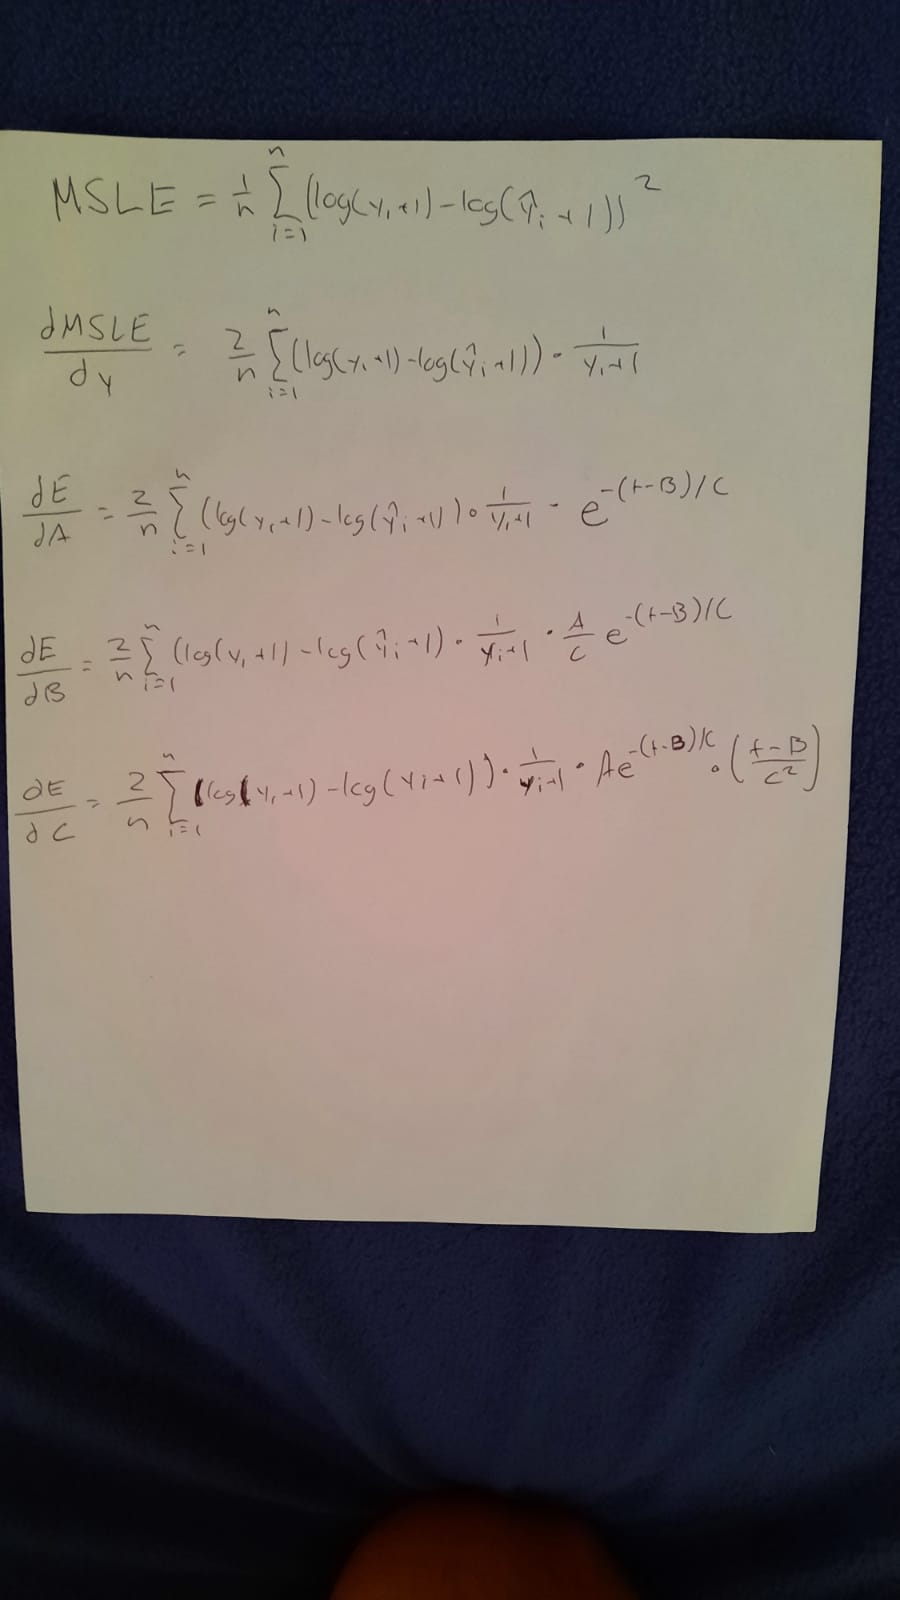 MSLE = 1/n Σ_{i=1}^{n} (log(y_i+1) - log(ŷ_i+1))^2
dMSLE/dy = 2/n Σ_{i=1}^{n} (log(y_i+1) - log(ŷ_i+1)) · 1/(y_i+1)
dE/dA = 2/n Σ_{i=1}^{n} (log(y_i+1) - log(ŷ_i+1)) · 1/(y_i+1) · e^{-(t-B)/C}
dE/dB = 2/n Σ_{i=1}^{n} (log(y_i+1) - log(ŷ_i+1) · 1/(y_i+1) · A/C e^{-(t-B)/C}
dE/dC = 2/n Σ_{i=1}^{n} (log(y_i+1) - log(y_i+1)) · 1/(y_i+1) · Ae^{-(t-B)/C} · ((t-B)/C^2)